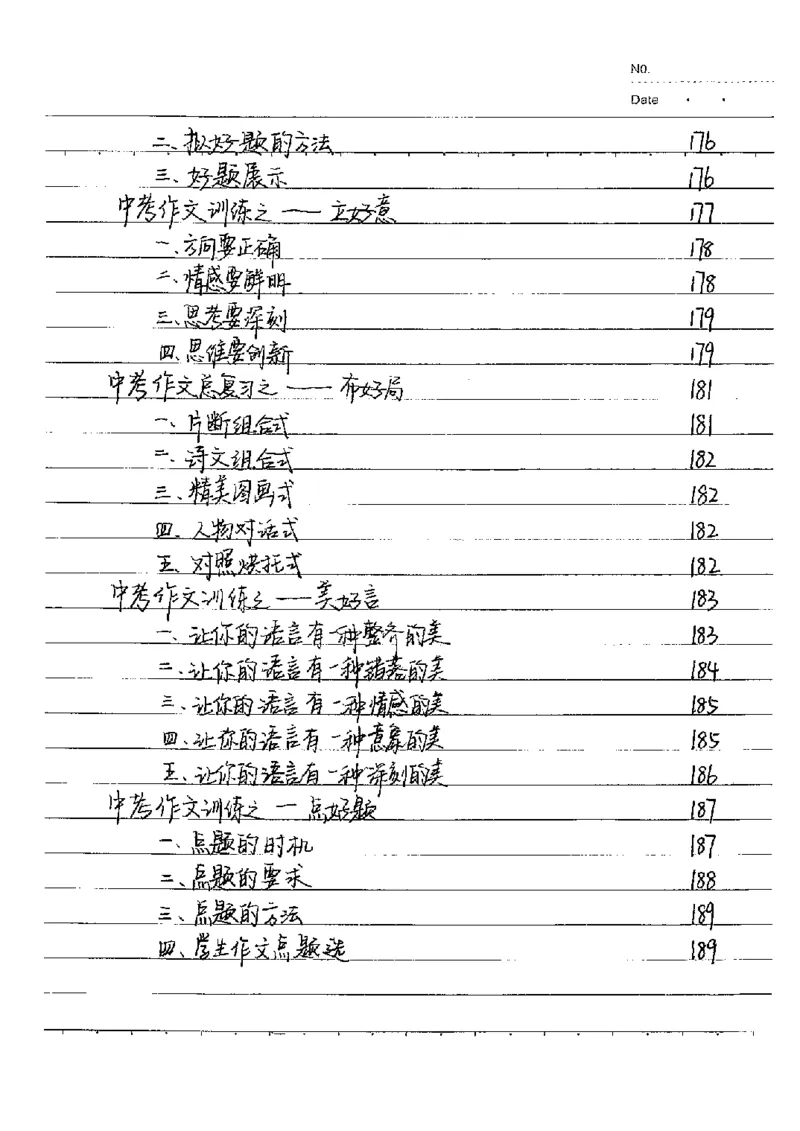 No.
Date
二、拟好题的方法 176
三、好题展示 176
中考作文训练之——立好意 177
一、方向要正确 178
二、情感要鲜明 178
三、思考要深刻 179
四、思维要创新 179
中考作文总复习之——布好局 181
一、片断组合式 181
二、诗文组合式 182
三、精美图画式 182
四、人物对话式 182
五、对照烘托式 182
中考作文训练之——美好言 183
一、让你的语言有一种整齐的美 183
二、让你的语言有一种错落的美 184
三、让你的语言有一种情感的美 185
四、让你的语言有一种意象的美 185
五、让你的语言有一种深刻的美 186
中考作文训练之—点好题 187
一、点题的时机 187
二、点题的要求 188
三、点题的方法 189
四、学生作文点题选 189